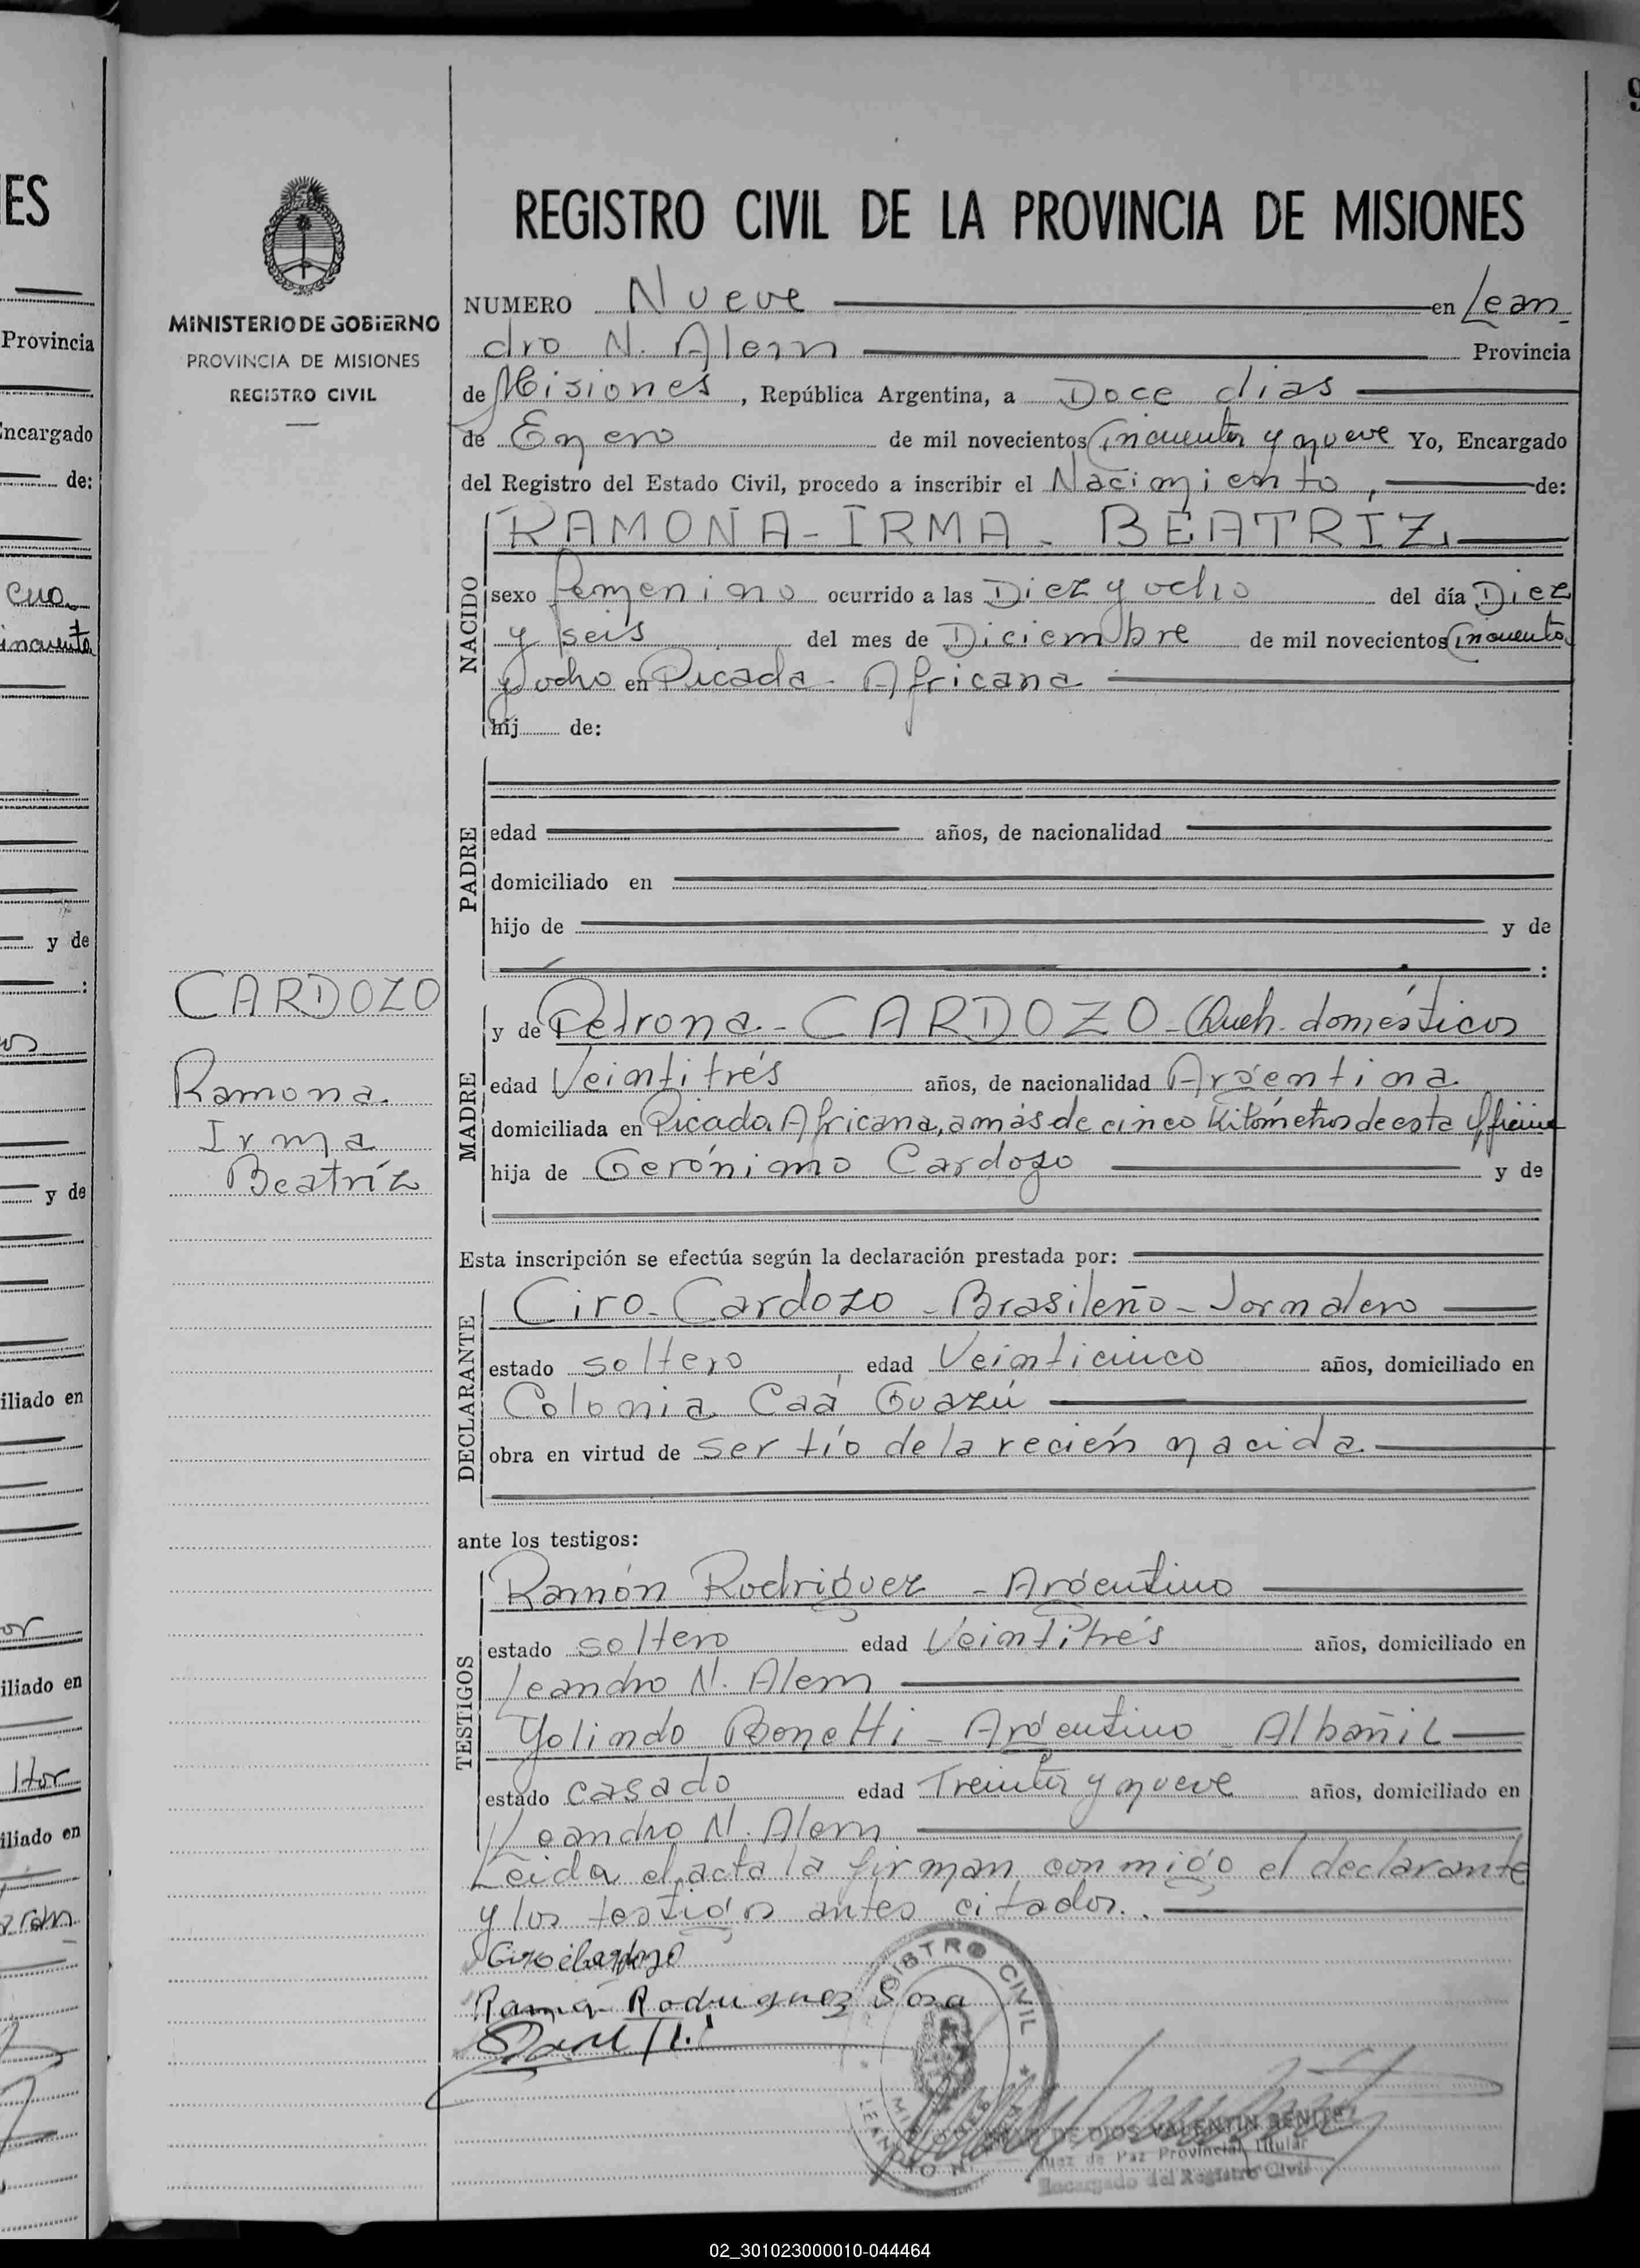 9
ES
Provincia
Encargado
de:
cua
incuenta
y de
:
os
y de
iliado en
or
iliado en
ltor
iliado en
MINISTERIO DE GOBIERNO
PROVINCIA DE MISIONES
REGISTRO CIVIL
CARDOZO
Ramona
Irma
Beatríz
REGISTRO CIVIL DE LA PROVINCIA DE MISIONES
NUMERO Nueve en Lean
dro N. Alem Provincia
de Misiones, República Argentina, a Doce dias
de Enero de mil novecientos Cincuenta y nueve Yo, Encargado
del Registro del Estado Civil, procedo a inscribir el Nacimiento, de:
RAMONA-IRMA-BEATRIZ
NACIDO
sexo femenino ocurrido a las Diez y ocho del día Diez
y seis del mes de Diciembre de mil novecientos Cincuenta
y ocho en Picada Africana
hij de:
PADRE
edad años, de nacionalidad
domiciliado en
hijo de y de
:
MADRE
y de Petrona-CARDOZO-Queh. domésticos
edad Veintitrés años, de nacionalidad Argentina
domiciliada en Picada Africana, a más de cinco Kilómetros de esta Oficina
hija de Gerónimo Cardozo y de
Esta inscripción se efectúa según la declaración prestada por:
DECLARANTE
Ciro-Cardozo-Brasileño-Jornalero
estado soltero, edad Veinticinco años, domiciliado en
Colonia Caá Guazú
obra en virtud de ser tío de la recién nacida
ante los testigos:
TESTIGOS
Ramón Rodriguez - Argentino
estado soltero edad Veintitrés años, domiciliado en
Leandro N. Alem
Yolindo Bonetti - Argentino - Albañil
estado casado edad Treinta y nueve años, domiciliado en
Leandro N. Alem
Leida el acta la firman conmigo el declarante
y los testigos antes citados..
Ciro Cardozo
Ramón Rodriguez Sosa
REGISTRO CIVIL
MISIONES
LEANDRO N.
DE DIOS VALENTIN BENITEZ
Juez de Paz Provincial Titular
Encargado del Registro Civil
02_301023000010-044464